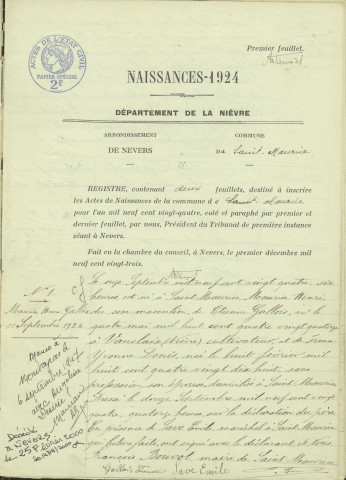 Premier feuillet.
ACTES DE L'ÉTAT CIVIL
PAPIER SPÉCIAL
2F
NAISSANCES-1924
DÉPARTEMENT DE LA NIÈVRE
ARRONDISSEMENT
DE NEVERS
COMMUNE
DE Saint-Maurice
REGISTRE, contenant deux feuillets, destiné à inscrire
les Actes de Naissances de la commune de Saint-Maurice
pour l'an mil neuf cent vingt-quatre, coté et paraphé par premier et
dernier feuillet, par nous, Président du Tribunal de première instance
séant à Nevers.
Fait en la chambre du conseil, à Nevers, le premier décembre mil
neuf cent vingt-trois.
N° 1
Maurice Henri Gallois
11 Septembre 1924
Marié à
6 septembre 1947
avec
Décédé
à NEVERS
le 25 Février 2000
Le onze Septembre mil neuf cent vingt quatre, six
heures est né à Saint-Maurice, Maurice Henri,
de Etienne Gallois, né le
quatre mai mil huit cent quatre vingt quatorze
à Vandelais (Nièvre) cultivateur, et de
Yvonne Denis, née le huit février mil
huit cent quatre vingt dix huit, sans
profession, son épouse, domiciliés à Saint-Maurice
Dressé le douze Septembre mil neuf cent vingt
quatre, quatorze heures, sur la déclaration du père.
En présence de Save Emile, maréchal à Saint-Maurice
qui, lecture faite, ont signé avec le déclarant et Nous,
François Bouvot, maire de Saint-Maurice
Gallois Etienne Save Emile